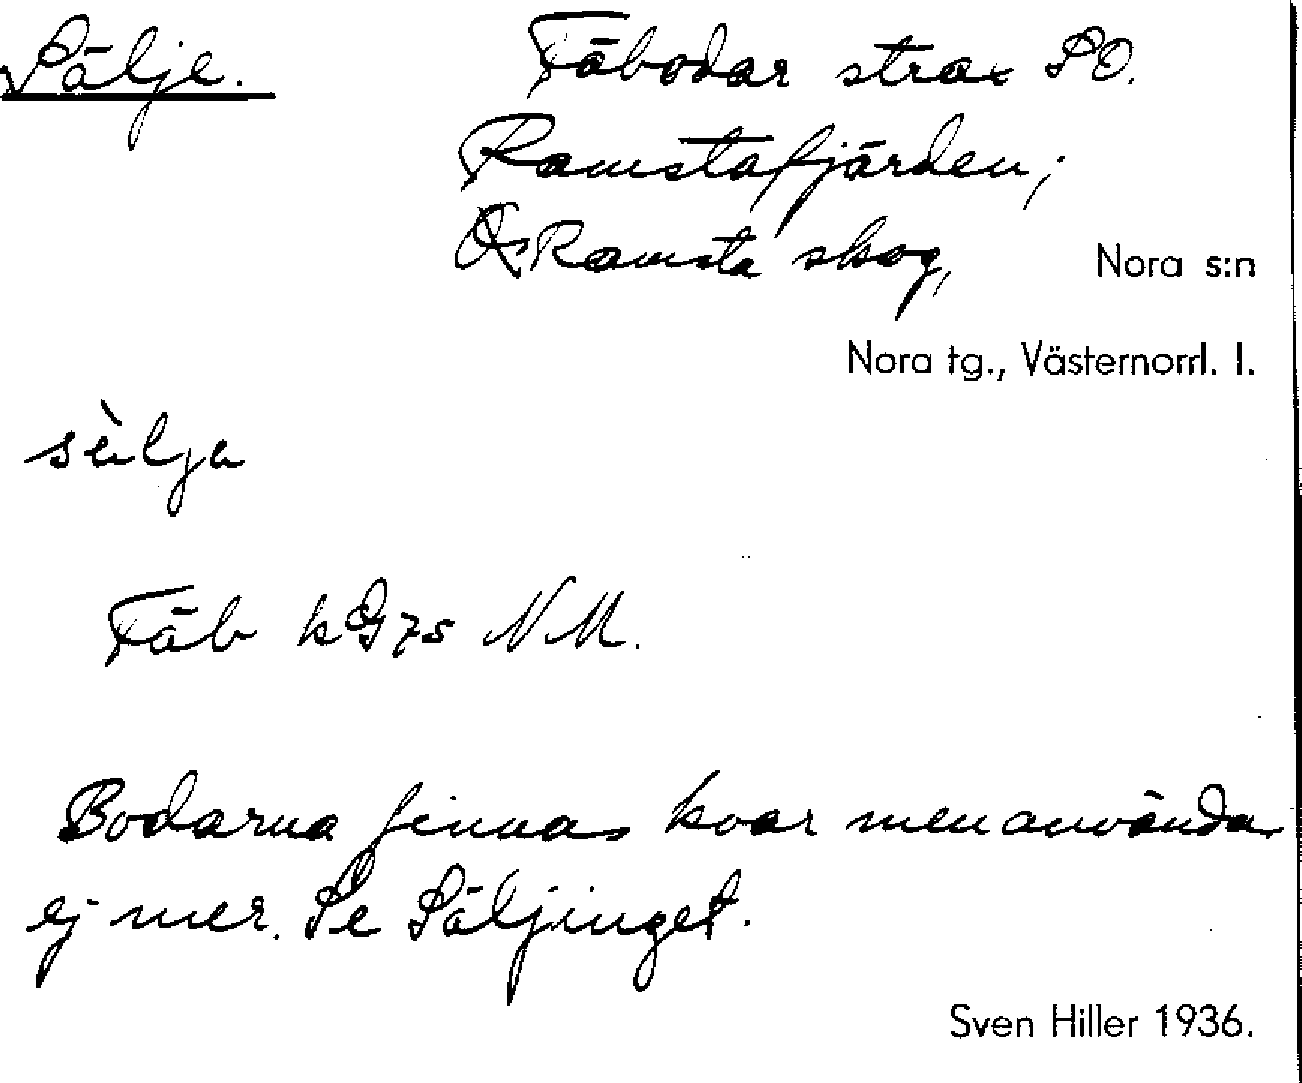 Sälje. Fäbodar strax SO.
Ramstafjärden;
Ramsta skog,
Nora s:n
Nora tg., Västernorrl. l.
sèlja
Fäb kG7s NM.
Bodarna finnas kvar men användas
ej mer. Se Säljinget.
Sven Hiller 1936.